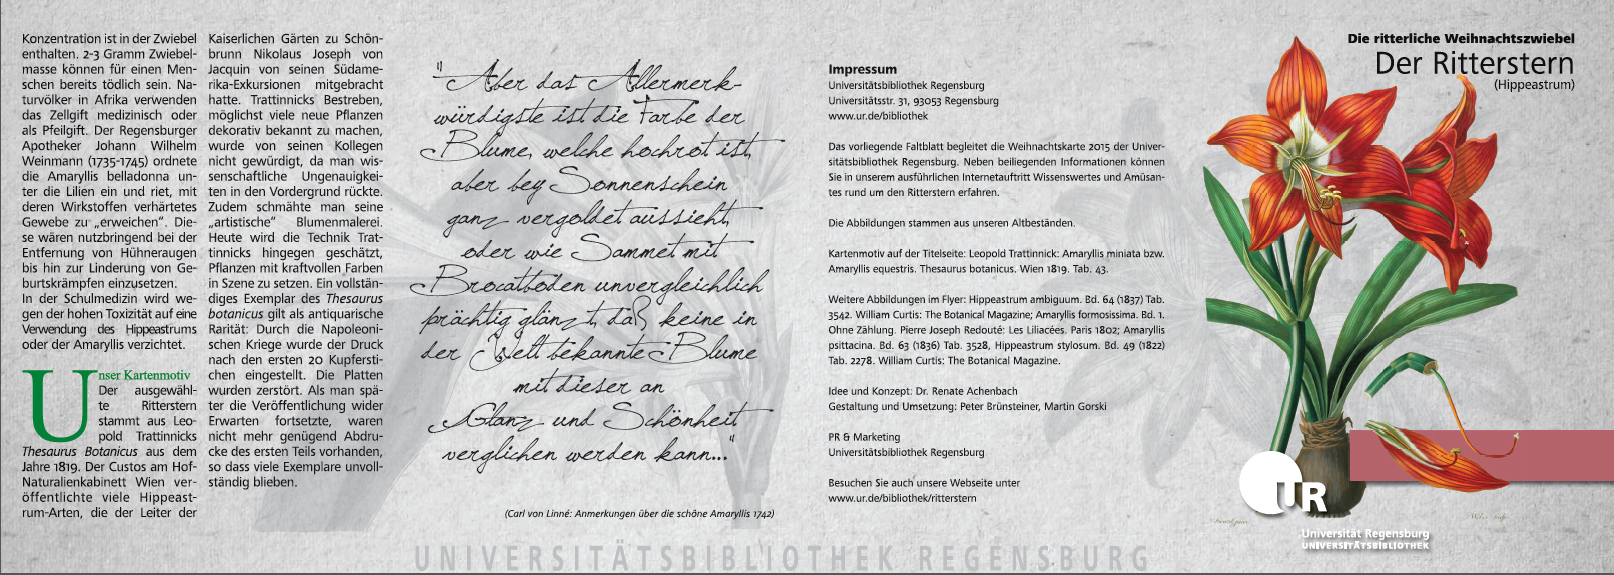 Konzentration ist in der Zwiebel
enthalten. 2-3 Gramm Zwiebel-
masse können für einen Men-
schen bereits tödlich sein. Na-
turvölker in Afrika verwenden
das Zellgift medizinisch oder
als Pfeilgift. Der Regensburger
Apotheker Johann Wilhelm
Weinmann (1735-1745) ordnete
die Amaryllis belladonna un-
ter die Lilien ein und riet, mit
deren Wirkstoffen verhärtetes
Gewebe zu „erweichen“. Die-
se wären nutzbringend bei der
Entfernung von Hühneraugen
bis hin zur Linderung von Ge-
burtskrämpfen einzusetzen.
In der Schulmedizin wird we-
gen der hohen Toxizität auf eine
Verwendung des Hippeastrums
oder der Amaryllis verzichtet.
Unser Kartenmotiv
Der ausgewähl-
te Ritterstern
stammt aus Leo-
pold Trattinnicks
Thesaurus Botanicus aus dem
Jahre 1819. Der Custos am Hof-
Naturalienkabinett Wien ver-
öffentlichte viele Hippeast-
rum-Arten, die der Leiter der
Kaiserlichen Gärten zu Schön-
brunn Nikolaus Joseph von
Jacquin von seinen Südame-
rika-Exkursionen mitgebracht
hatte. Trattinnicks Bestreben,
möglichst viele neue Pflanzen
dekorativ bekannt zu machen,
wurde von seinen Kollegen
nicht gewürdigt, da man wis-
senschaftliche Ungenauigkei-
ten in den Vordergrund rückte.
Zudem schmähte man seine
„artistische“ Blumenmalerei.
Heute wird die Technik Trat-
tinnicks hingegen geschätzt,
Pflanzen mit kraftvollen Farben
in Szene zu setzen. Ein vollstän-
diges Exemplar des Thesaurus
botanicus gilt als antiquarische
Rarität: Durch die Napoleoni-
schen Kriege wurde der Druck
nach den ersten 20 Kupfersti-
chen eingestellt. Die Platten
wurden zerstört. Als man spä-
ter die Veröffentlichung wider
Erwarten fortsetzte, waren
nicht mehr genügend Abdru-
cke des ersten Teils vorhanden,
so dass viele Exemplare unvoll-
ständig blieben.
"Aber das Allermerk-
würdigste ist die Farbe der
Blume, welche hochrot ist,
aber bey Sonnenschein
ganz vergoldet aussieht,
oder wie Sammet mit
Brocatböden unvergleichlich
prächtig glänzt, daß keine in
der Welt bekannte Blume
mit dieser an
Glanz und Schönheit
verglichen werden kann..."
(Carl von Linné: Anmerkungen über die schöne Amaryllis 1742)
Impressum
Universitätsbibliothek Regensburg
Universitätsstr. 31, 93053 Regensburg
www.ur.de/bibliothek
Das vorliegende Faltblatt begleitet die Weihnachtskarte 2015 der Univer-
sitätsbibliothek Regensburg. Neben beiliegenden Informationen können
Sie in unserem ausführlichen Internetauftritt Wissenswertes und Amüsan-
tes rund um den Ritterstern erfahren.
Die Abbildungen stammen aus unseren Altbeständen.
Kartenmotiv auf der Titelseite: Leopold Trattinnick: Amaryllis miniata bzw.
Amaryllis equestris. Thesaurus botanicus. Wien 1819. Tab. 43.
Weitere Abbildungen im Flyer: Hippeastrum ambiguum. Bd. 64 (1837) Tab.
3542. William Curtis: The Botanical Magazine; Amaryllis formosissima. Bd. 1.
Ohne Zählung. Pierre Joseph Redouté: Les Liliacées. Paris 1802; Amaryllis
psittacina. Bd. 63 (1836) Tab. 3528, Hippeastrum stylosum. Bd. 49 (1822)
Tab. 2278. William Curtis: The Botanical Magazine.
Idee und Konzept: Dr. Renate Achenbach
Gestaltung und Umsetzung: Peter Brünsteiner, Martin Gorski
PR & Marketing
Universitätsbibliothek Regensburg
Besuchen Sie auch unsere Webseite unter
www.ur.de/bibliothek/ritterstern
Die ritterliche Weihnachtszwiebel
Der Ritterstern
(Hippeastrum)
UR
Universität Regensburg
UNIVERSITÄTSBIBLIOTHEK
UNIVERSITÄTSBIBLIOTHEK REGENSBURG